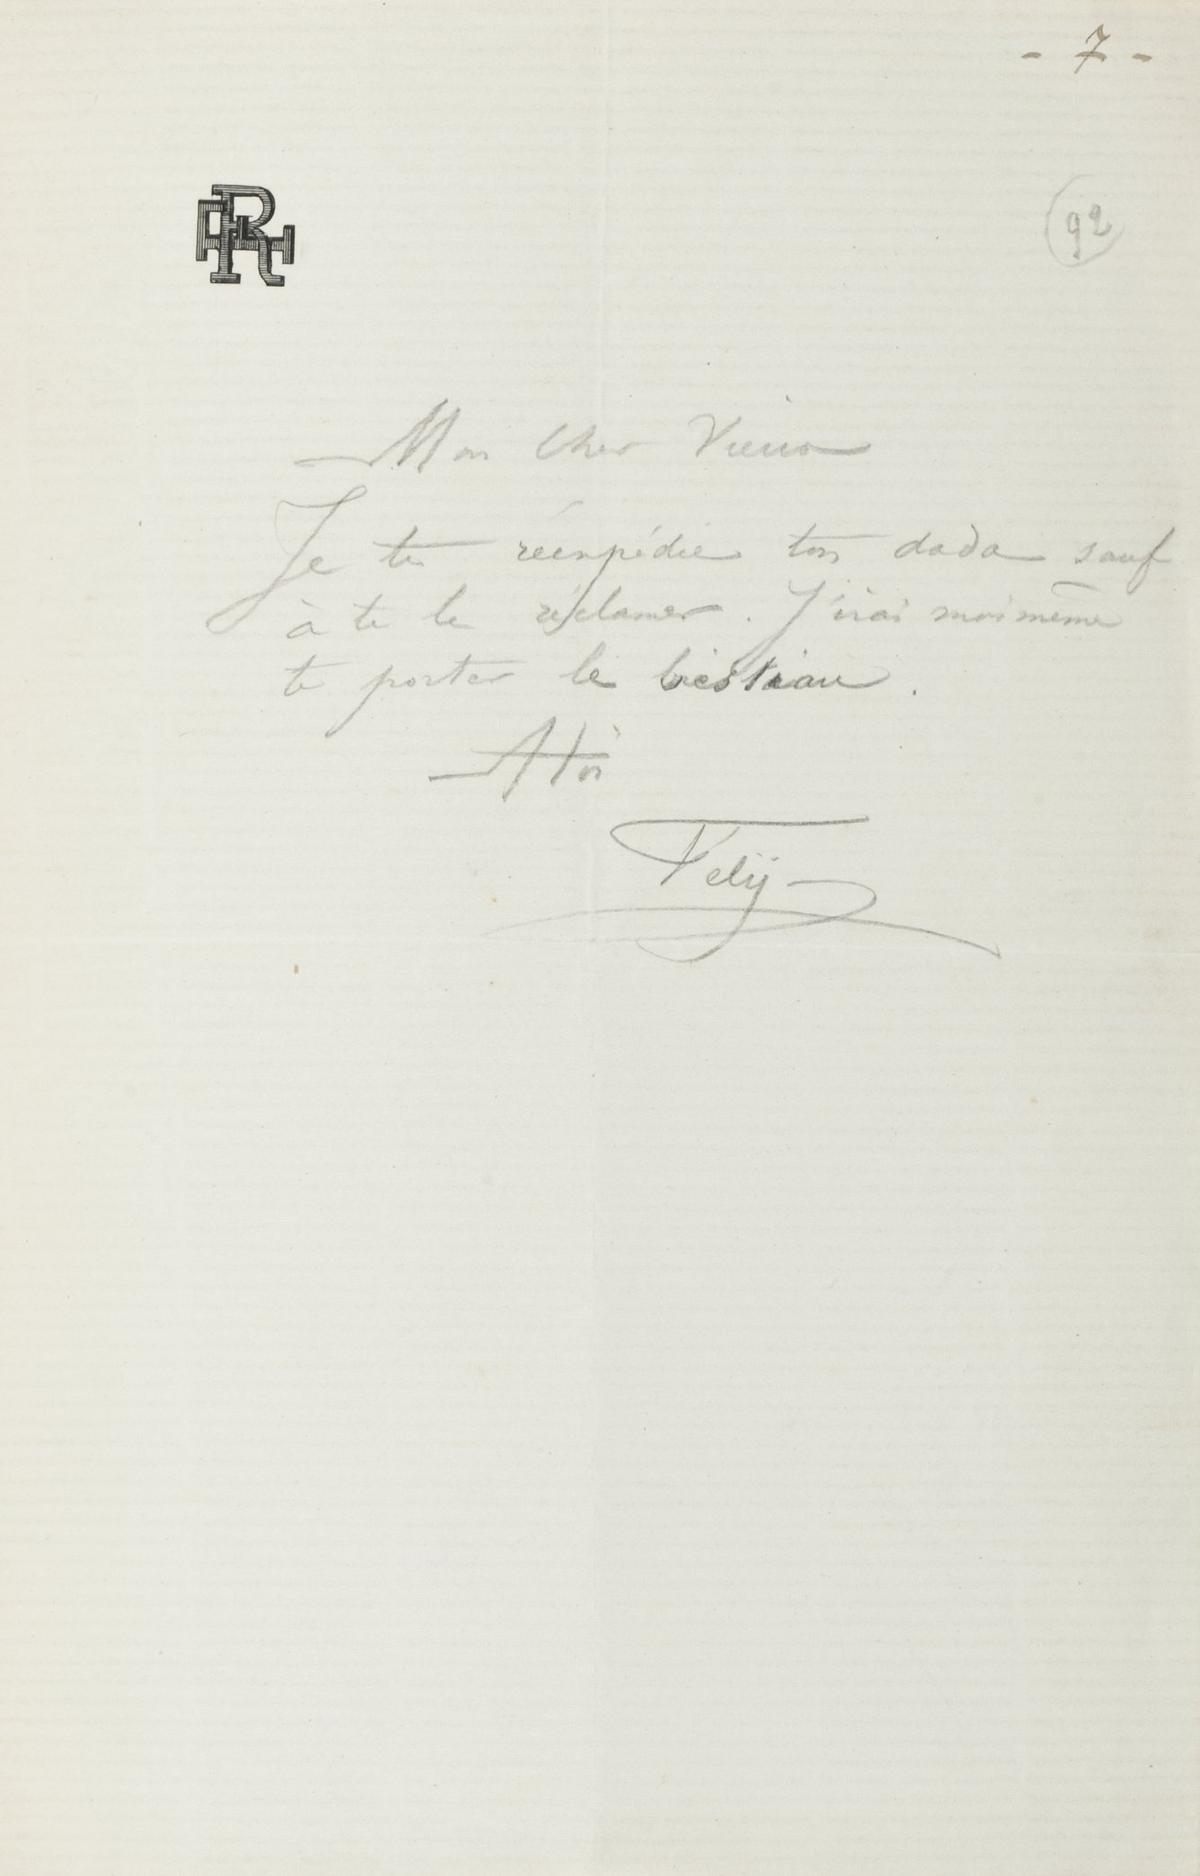 - 7 -
92
Mon Cher Vieux
Je te réenpédie ton dada sauf
à te le réclamer. J'irai moi même
te porter le biestiau.
A toi
Fély